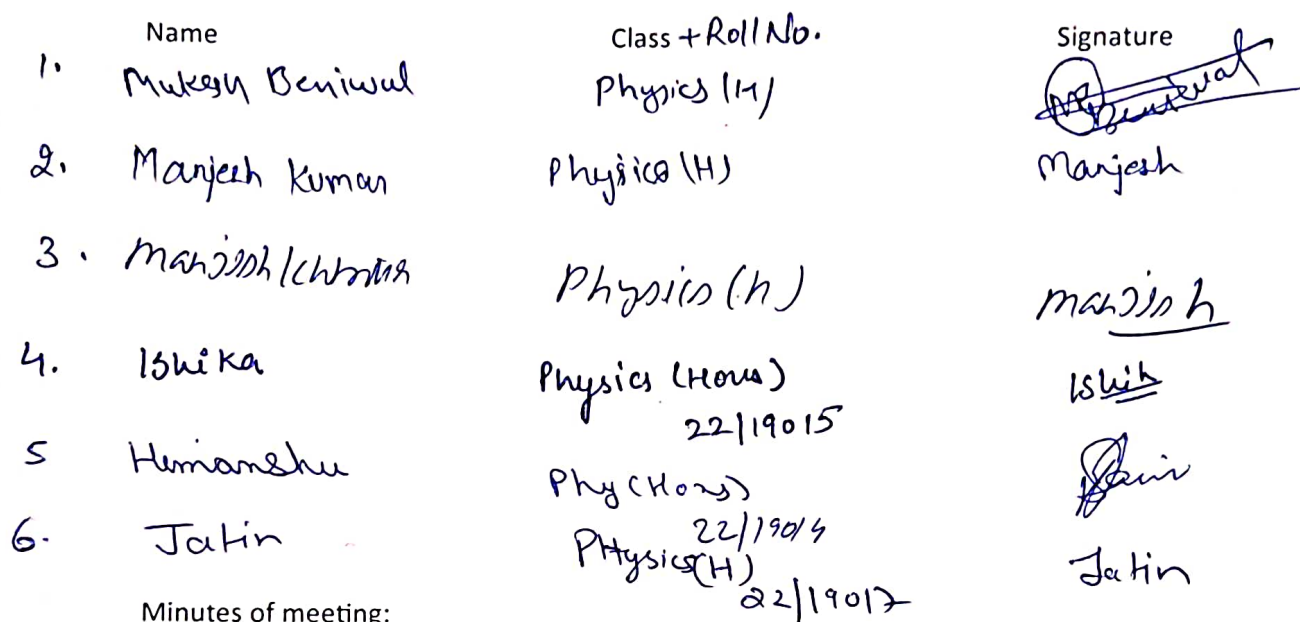 Name Class + Roll No. Signature
1. Mukesh Beniwal Physics (H) Beniwal
2. Manjesh Kumar Physics (H) Manjesh
3. Manjish Physics (h) manjish
4. Ishika Physics (Hons) Ishik
22/19015
5 Himanshu Phy (Hons)
22/19014
6. Jatin PHysics(H) Jatin
22/19017
Minutes of meeting: